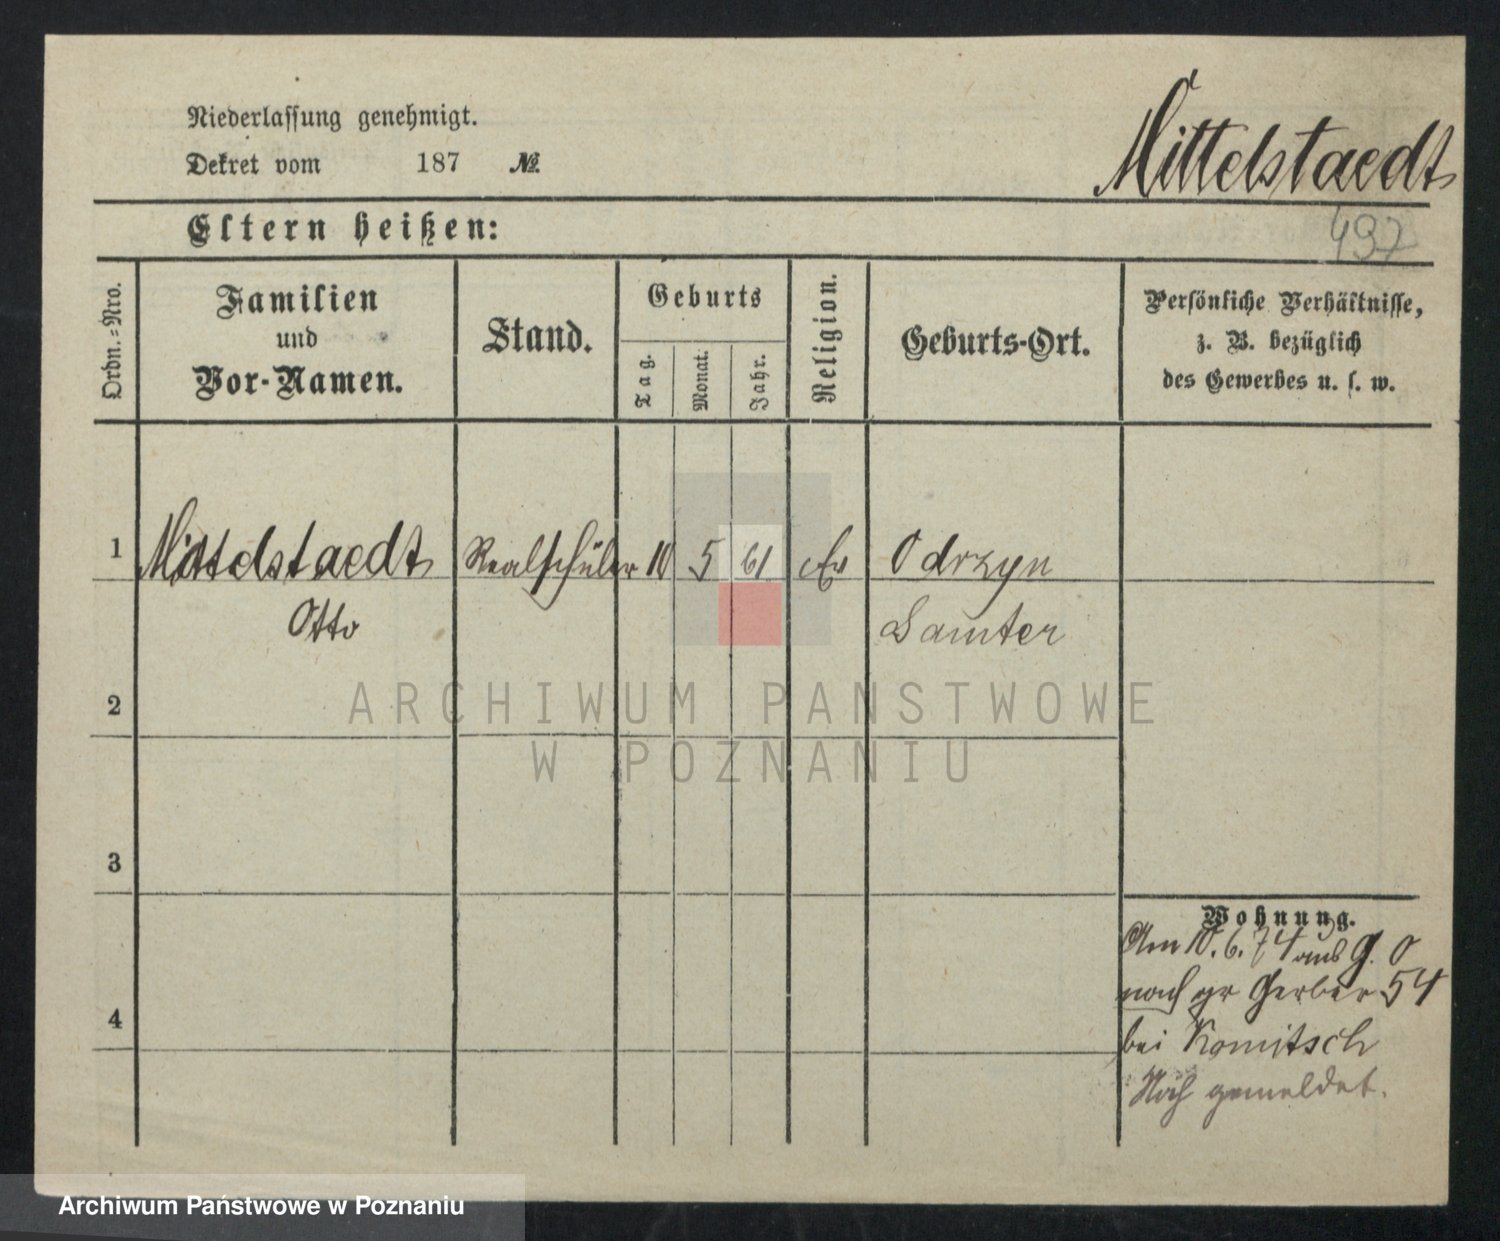 Niederlassung genehmigt.
Dekret vom 187 №
Mittelstaedt
497
Eltern heißen:
Ordn.-Nro.
Familien
und
Vor-Namen.
Stand.
Geburts
Tag.
Monat.
Jahr.
Religion.
Geburts-Ort.
Persönliche Verhältnisse,
z. B. bezüglich
des Gewerbes u. s. w.
1 Mittelstaedt Realschüler 10 5 61 Ev Odrzyn
Otto Samter
2
ARCHIWUM PANSTWOWE
W POZNANIU
3
Wohnung.
Am 10.6.74 aus G. O
nach gr Gerber 54
4
bei Komitsch
Noch gemeldet.
Archiwum Państwowe w Poznaniu